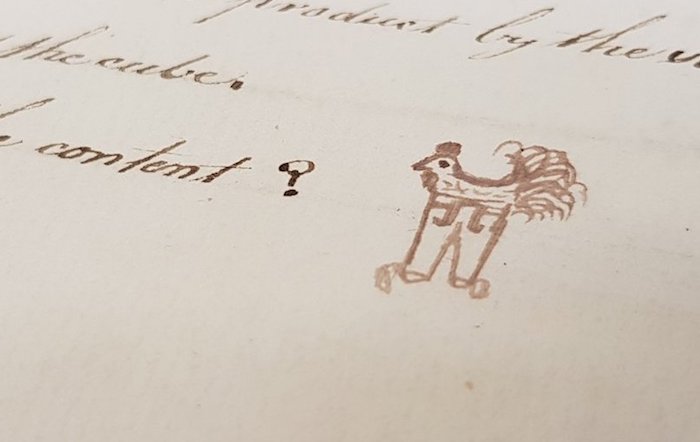 product by the
the cube.
content ?